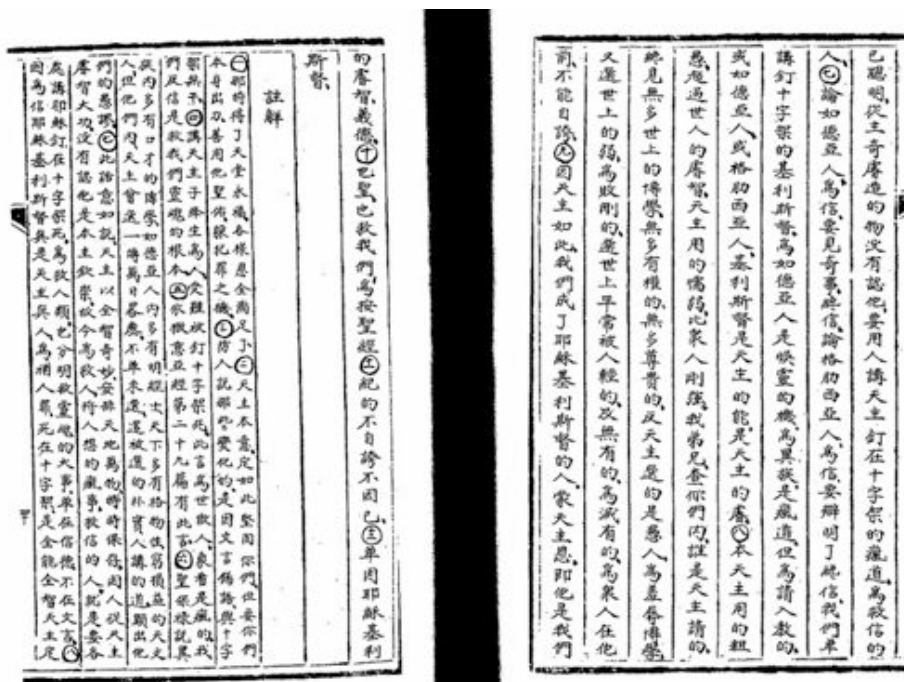 己聰明、從主奇睿造的物沒有認他、要用人講天主釘在十字架的癲道、為救信的
人、㊆論如德亞人為信、要見奇事、纔信、論格肋西亞人為信、要辯明了纔信、我們單
講釘十字架的基利斯督、為如德亞人是悞靈的機、為異族是癲道、但為請入教的、
或如德亞人、或格肋西亞人、基利斯督是天主的能、是天主的睿、㊇本天主用的粗
愚、超過世人的睿智、天主用的懦弱、比衆人剛強、我弟兄查你們內、誰是天主請的、
終見無多世上的博學、無多有權的、無多尊貴的、反天主選的是愚人、為羞辱博學、
又選世上的弱、為敗剛的、選世上平常被人輕的、及無有的、為滅有的、為衆人在他
前、不能自誇、㊈因天主如此、我們成了耶穌基利斯督的人、蒙天主恩、即他是我們
的睿智、義德、㊉已聖、也救我們、為按聖經㊂紀的不自誇不因己、㊂單因耶穌基利
斯督、
註解
㊀那時得了天堂永福、各樣恩全備足了、㊁天主本意、定如此堅固你們、但要你們
本身出力、善用他聖佑、躲犯罪之機、㊂ 人説那些變化的、是因文言錫誇、與十字
架無干、㊃講天主子降生為人、受難被釘十字架死、此言為世俗人、衆看是癲的、我
們反信是救我們靈魂的根本、㊄依撒意亞經第二十九篇有此言、㊅聖保祿説、異
教內多有口才的博學、如德亞人內、多有明經士、天下多有格物性窮 的天文
人、但他們內、天主曾選一 、不單未選、還被選的朴實人講的道、顯出他
們的愚謬、㊆此話意如説、天主以全智奇妙、安排天地萬物、時時保存、因人從天主
睿智大功、沒有認他是本主欽崇、故今為救人、將人想的癲事、教信的人、就是要各
處講耶穌釘在十字架死、為救人類、也分明救靈魂的大事、單在信德、不在文言、㊇
因為信耶穌基利斯督真是天主真人、為補人罪、死在十字架、是全能全智天主定